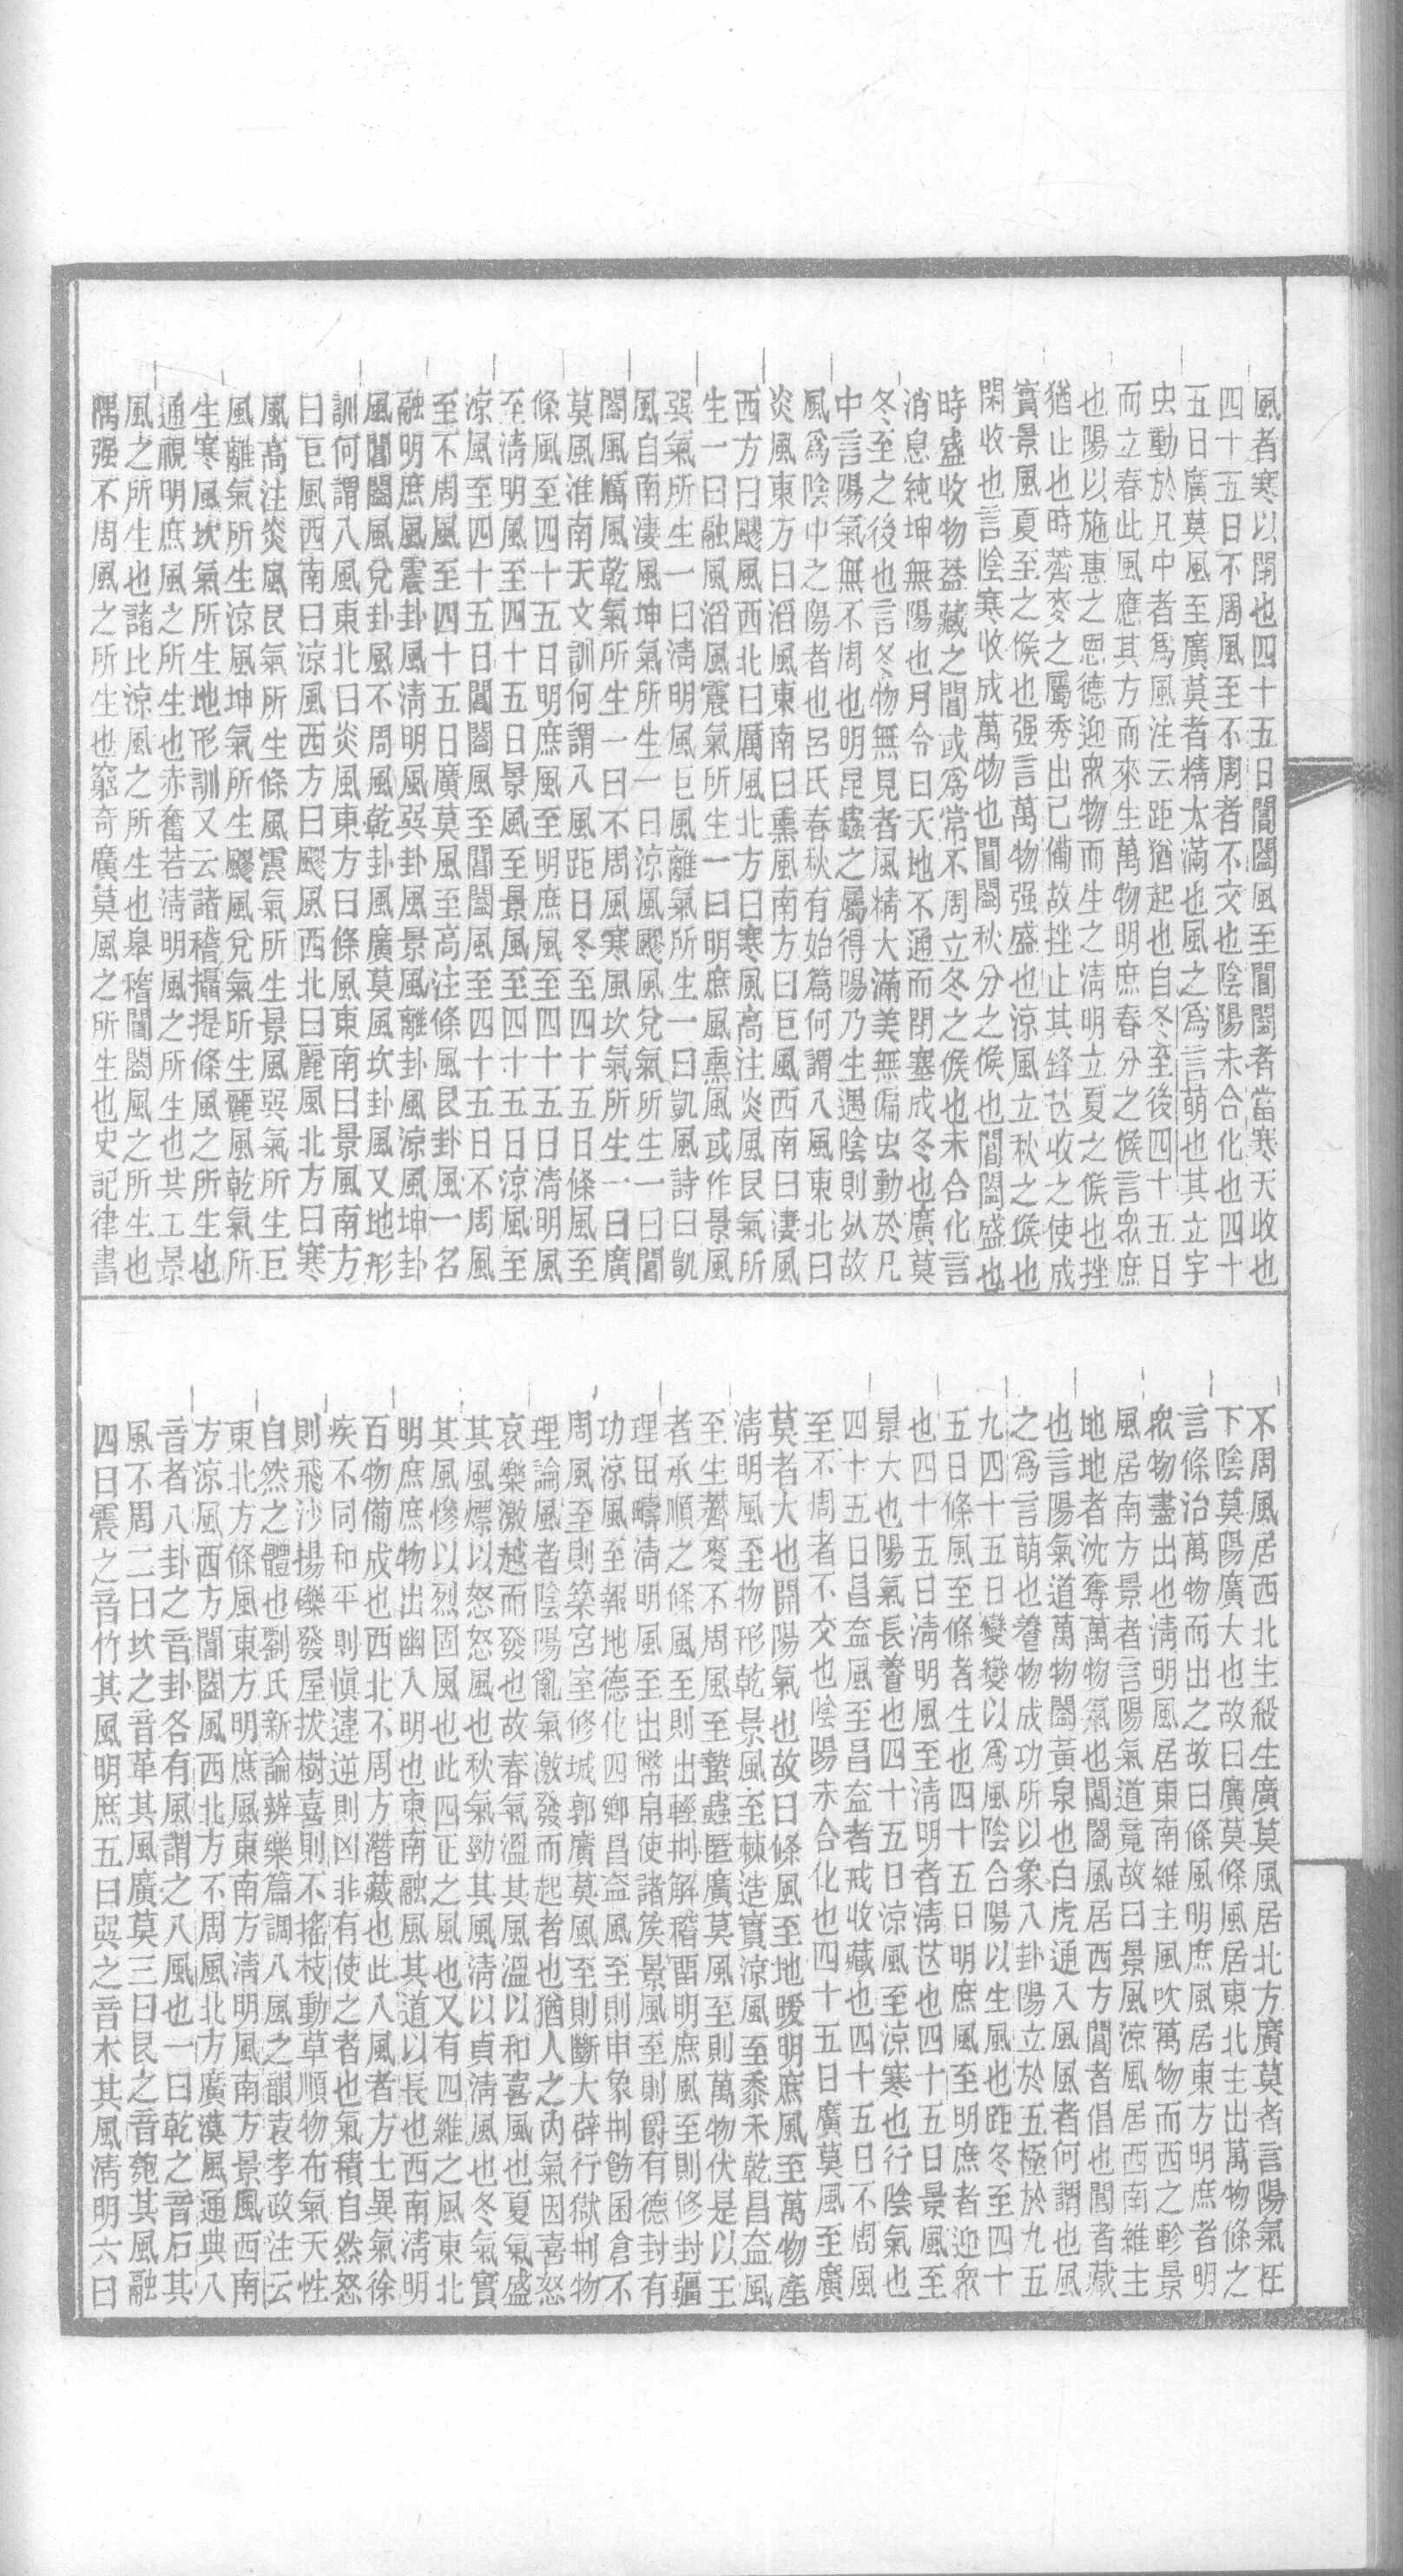 風者寒以閉也四十五日閶闔風至閶闔者當寒天收也
四十五日不周風至不周者不交也陰陽未合化也四十
五日廣莫風至廣莫者精大滿也風之爲言萌也其立字
虫動於凡中者爲風注云距猶起也自冬至後四十五日
而立春此風應其方而來生萬物明庶春分之候言衆庶
也陽以施惠之恩德迎衆物而生之淸明立夏之候也挫
猶止也時薺麥之屬秀出已備故挫止其鋒芒收之使成
實景風夏至之候也强言萬物强盛也涼風立秋之候也
閑收也言陰寒收成萬物也閶闔秋分之候也閶闔盛也
時盛收物葢藏之閶或爲常不周立冬之候也未合化言
消息純坤無陽也月令曰天地不通而閉塞成冬也廣莫
冬至之後也言冬物無見者風精大滿美無偏虫動於凡
中言陽氣無不周也明昆蟲之屬得陽乃生遇陰則死故
風爲陰中之陽者也呂氏春秋有始篇何謂八風東北曰
炎風東方曰滔風東南曰熏風南方曰巨風西南曰淒風
西方曰飂風西北曰厲風北方曰寒風高注炎風艮氣所
生一曰融風滔風震氣所生一曰明庶風熏風或作景風
巽氣所生一曰淸明風巨風離氣所生一曰凱風詩曰凱
風自南淒風坤氣所生一曰涼風飂風兌氣所生一曰閶
闔風厲風乾氣所生一曰不周風寒風坎氣所生一曰廣
莫風淮南天文訓何謂八風距日冬至四十五日條風至
條風至四十五日明庶風至明庶風至四十五日淸明風
至淸明風至四十五日景風至景風至四十五日涼風至
涼風至四十五日閶闔風至閶闔風至四十五日不周風
至不周風至四十五日廣莫風至高注條風艮卦風一名
融明庶風震卦風淸明風巽卦風景風離卦風涼風坤卦
風閶闔風兌卦風不周風乾卦風廣莫風坎卦風又地形
訓何謂八風東北曰炎風東方曰條風東南曰景風南方
曰巨風西南曰涼風西方曰飂風西北曰麗風北方曰寒
風高注炎風艮氣所生條風震氣所生景風巽氣所生巨
風離氣所生涼風坤氣所生飂風兌氣所生麗風乾氣所
生寒風坎氣所生地形訓又云諸稽攝提條風之所生也
通視明庶風之所生也赤奮若淸明風之所生也共工景
風之所生也諸比涼風之所生也皋稽閶闔風之所生也
隅强不周風之所生也窮奇廣莫風之所生也史記律書
不周風居西北生殺生廣莫風居北方廣莫者言陽氣在
下陰莫陽廣大也故曰廣莫條風居東北主出萬物條之
言條治萬物而出之故曰條風明庶風居東方明庶者明
衆物盡出也淸明風居東南維主風吹萬物而西之軫景
風居南方景者言陽氣道竟故曰景風涼風居西南維主
地地者沈奪萬物氣也閶闔風居西方閶者倡也闔者藏
也言陽氣道萬物闔黃泉也白虎通八風者何謂也風
之爲言萌也養物成功所以象八卦陽立於五極於九五
九四十五日變變以爲風陰合陽以生風也距冬至四十
五日條風至條者生也四十五日明庶風至明庶者迎衆
也四十五日淸明風至淸明者淸芒也四十五日景風至
景大也陽氣長養也四十五日涼風至涼寒也行陰氣也
四十五日昌盍風至昌盍者戒收藏也四十五日不周風
至不周者不交也陰陽未合化也四十五日廣莫風至廣
莫者大也開陽氣也故曰條風至地暖明庶風至萬物產
淸明風至物形乾景風至棘造實涼風至黍禾乾昌盍風
至生薺麥不周風至蟄蟲匿廣莫風至則萬物伏是以王
者承順之條風至則出輕刑解稽畱明庶風至則修封疆
理田疇淸明風至出幣帛使諸侯景風至則爵有德封有
功涼風至報地德化四鄉昌盍風至則申象刑飭囷倉不
周風至則築宮室修城郭廣莫風至則斷大辟行獄刑物
理論風者陰陽亂氣激發而起者也猶人之內氣因喜怒
哀樂激越而發也故春氣溫其風溫以和喜風也夏氣盛
其風熛以怒怒風也秋氣勁其風淸以貞淸風也冬氣實
其風慘以烈固風也此四正之風也又有四維之風東北
明庶庶物出幽入明也東南融風其道以長也西南淸明
百物備成也西北不周方潛藏也此八風者方土異氣徐
疾不同和平則愼違逆則凶非有使之者也氣積自然怒
則飛沙揚礫發屋拔樹喜則不搖枝動草順物布氣天性
自然之體也劉氏新論辨樂篇調八風之韻袁孝政注云
東北方條風東方明庶風東南方淸明風南方景風西南
方涼風西方閶闔風西北方不周風北方廣漠風通典八
音者八卦之音卦各有風謂之八風也一曰乾之音石其
風不周二曰坎之音革其風廣莫三曰艮之音匏其風融
四曰震之音竹其風明庶五曰巽之音木其風淸明六曰